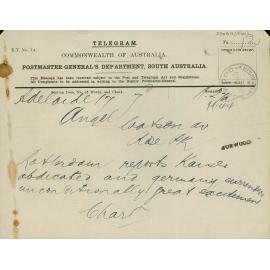 TELEGRAM.
COMMONWEALTH OF AUSTRALIA.
POSTMASTER-GENERAL'S DEPARTMENT, SOUTH AUSTRALIA.
This Message has been received subject to the Post and Telegraph Act and Regulations.
All Complaints to be addressed in writing to the Deputy Postmaster-General.
Station from, No. of Words, and Check.
Adelaide 17 7d
Angel
Watson av
Rose Pk
BURWOOD
Rotterdam reports Kaiser
abdicated and Germany surrendered
unconditionally great excitement
Chart